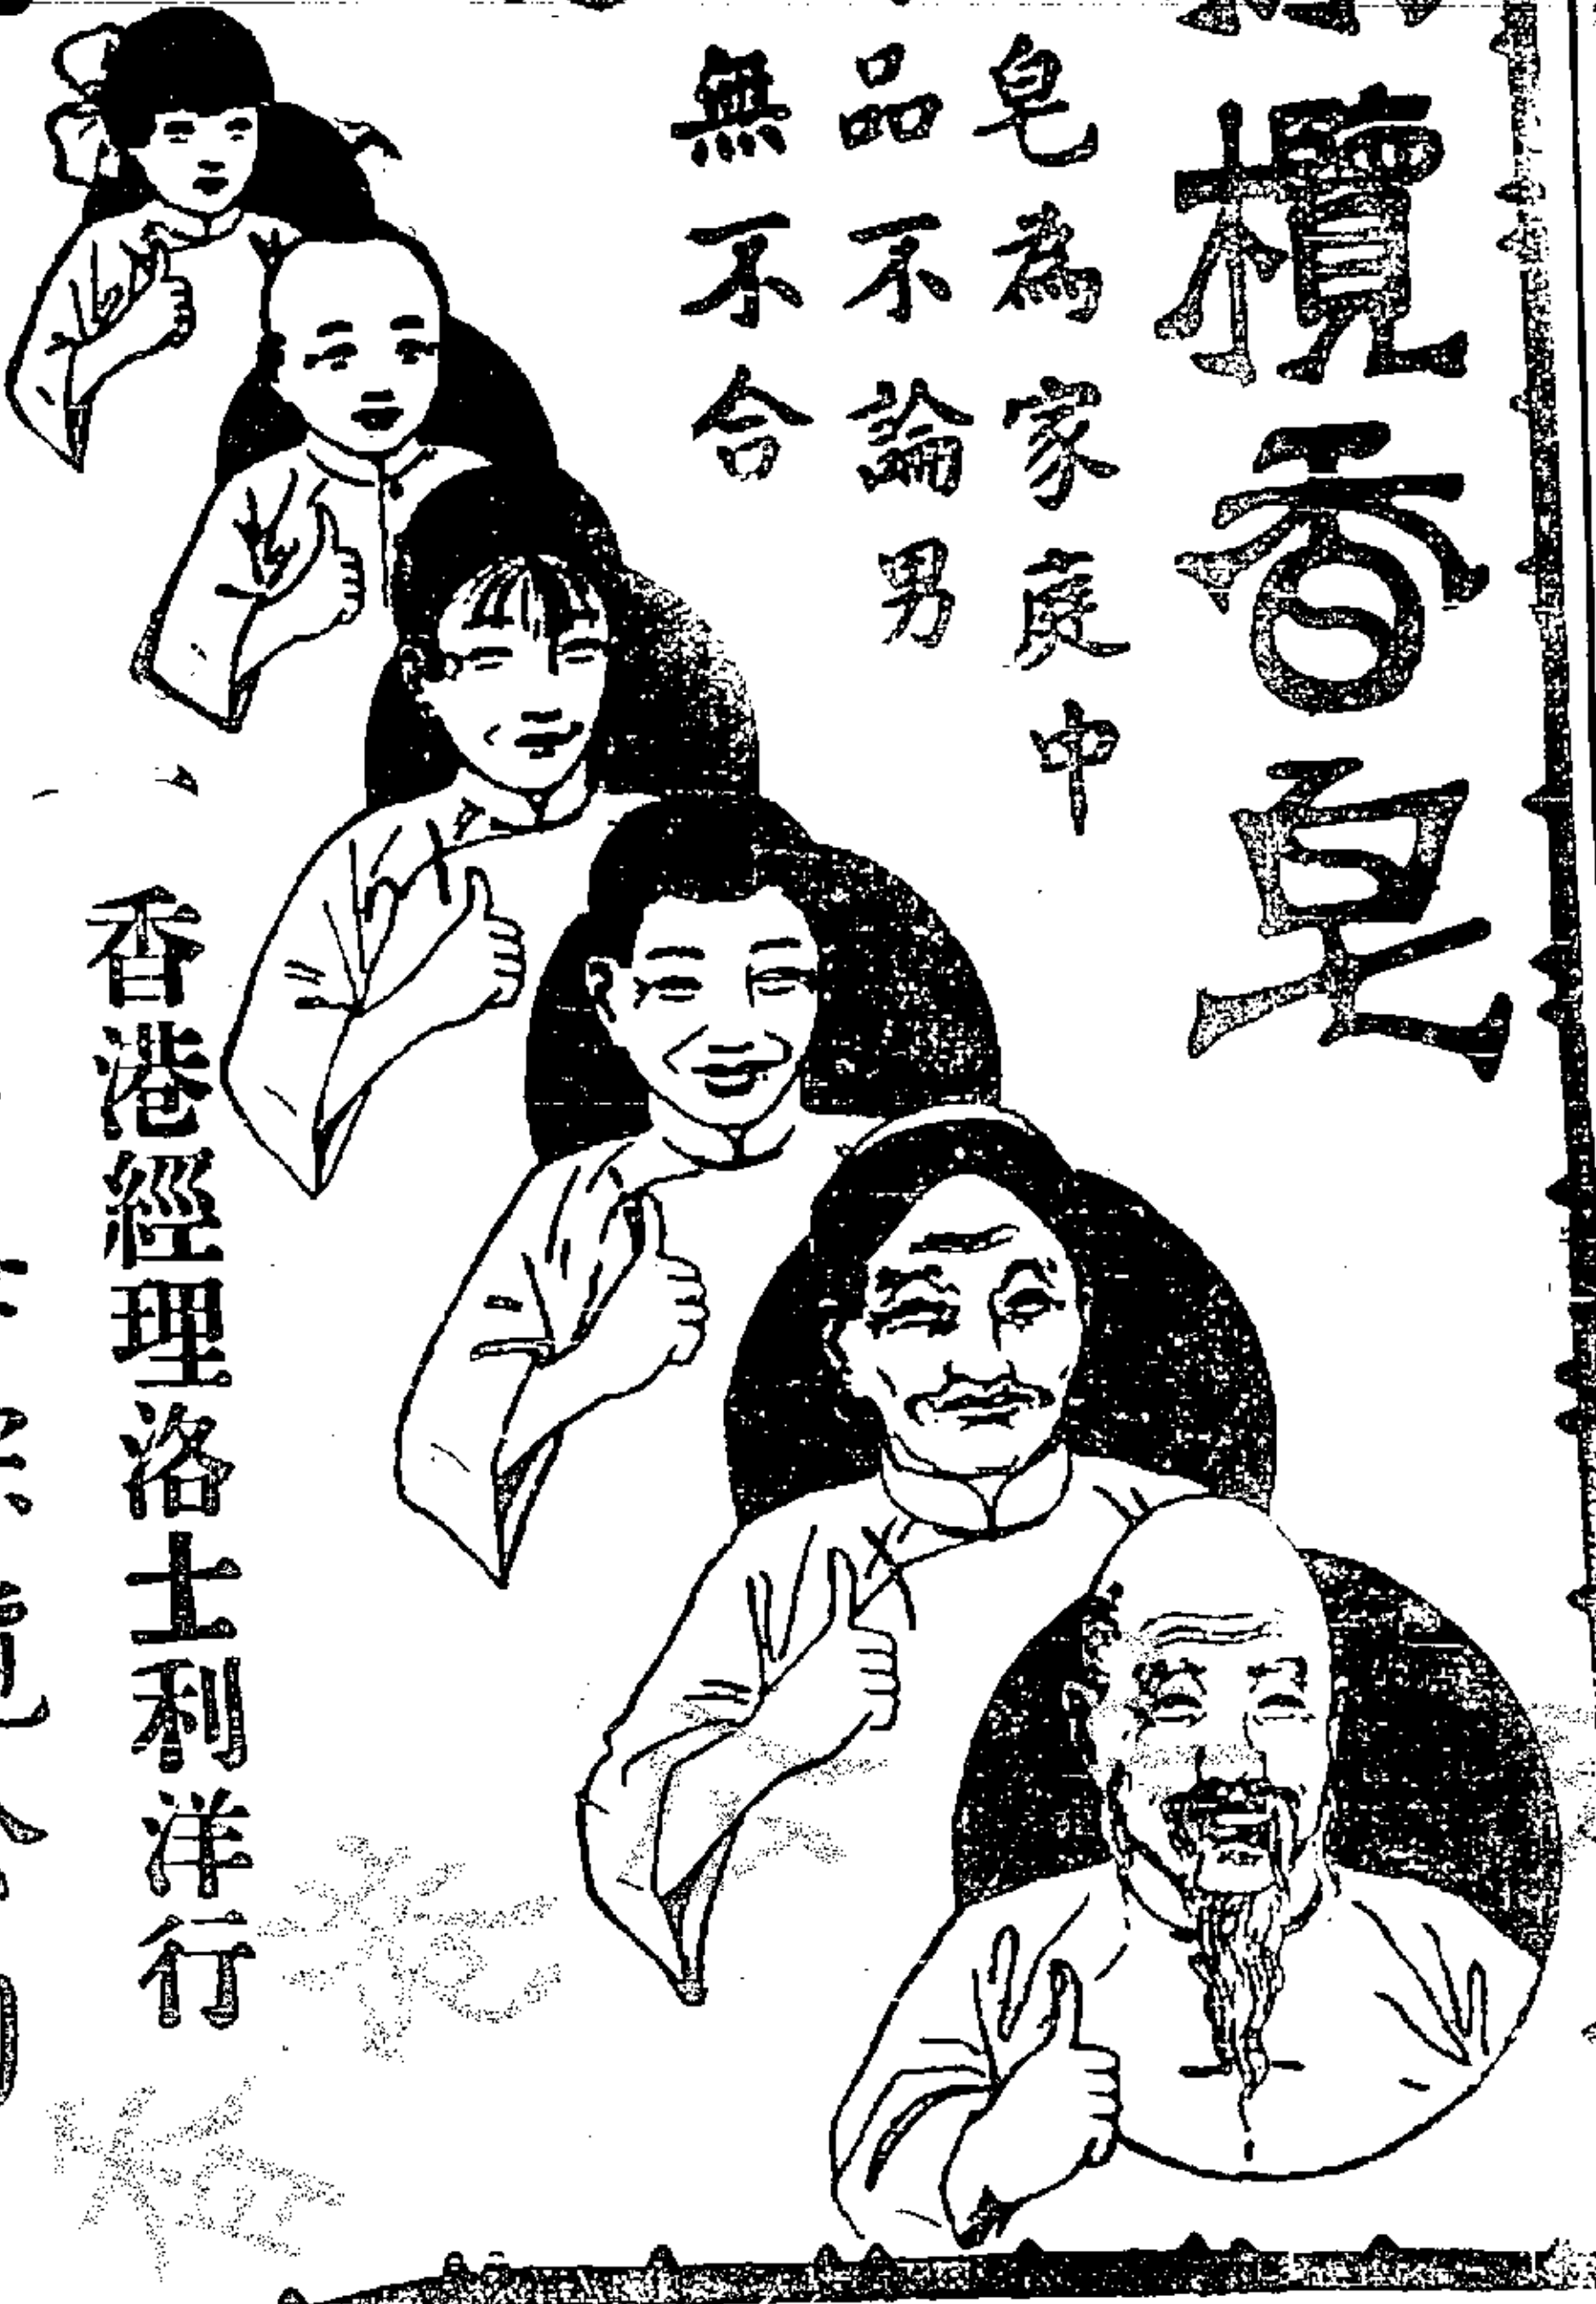 欖香皂
皂為家庭中
品不論男
無不合
香港經理洛士利洋行